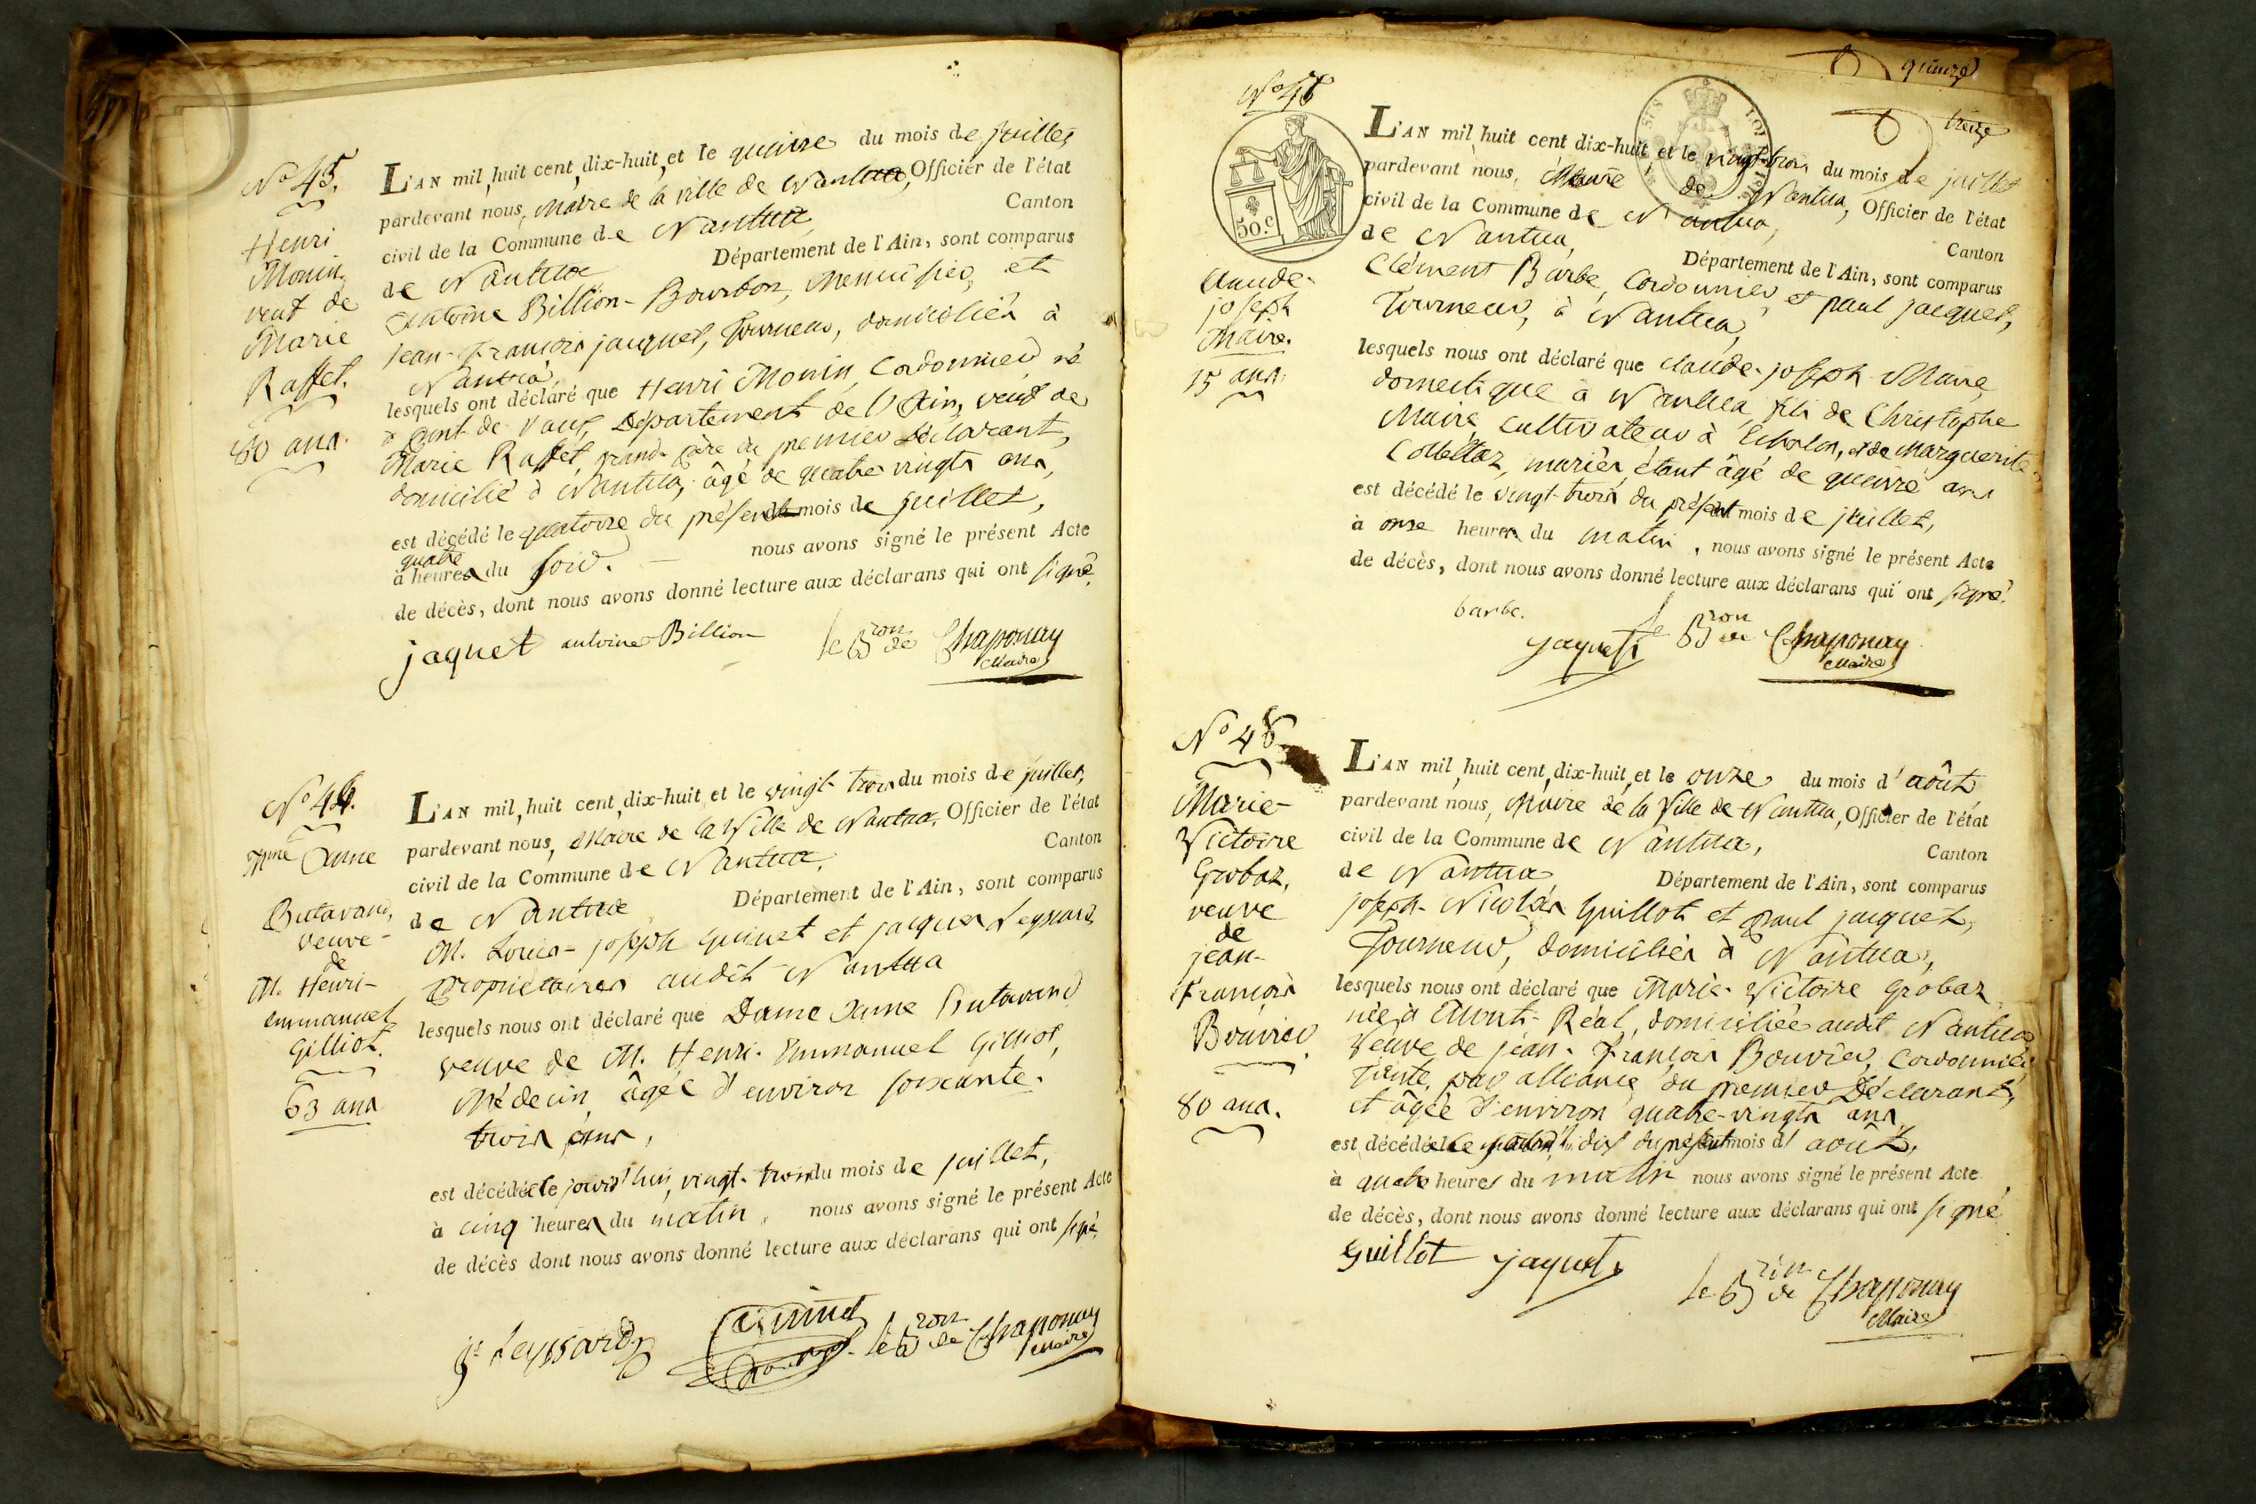 No 45.
Henri
Monin,
veuf de
Marie
Raffet.
80 ans.
L'AN mil huit cent dix-huit et le quinze du mois de juillet
pardevant nous, Maire de la ville de Nantua, Officier de l'état
civil de la Commune de Nantua, Canton
de Nantua Département de l'Ain, sont comparus
Antoine Billion-Bourbon, Menuisier, et
jean-françois jacquet, Tourneur, domiciliés à
Nantua,
lesquels ont déclaré que Henri Monin, Cordonnier, né
à Pont-de-Vaux, Département de l'Ain, veuf de
Marie Raffet, grand-père du premier Déclarant,
domicilié à Nantua, âgé de quatre-vingts ans,
est décédé le quatorze du présent mois de juillet,
quatre
à heures du soir. nous avons signé le présent Acte
de décès, dont nous avons donné lecture aux déclarans qui ont signé.
jaquet antoine Billion le Bron de Chaponay
Maire
No 46.
Mme Anne
Butavand,
veuve
de
M. Henri-
emmanuel
Gilliot.
63 ans
L'AN mil huit cent dix-huit et le vingt-trois du mois de juillet,
pardevant nous, Maire de la Ville de Nantua, Officier de l'état
civil de la Commune de Nantua, Canton
de Nantua Département de l'Ain, sont comparus
M. Louis-joseph Guinet et jacques Leyssard,
propriétaires audit Nantua
lesquels nous ont déclaré que Dame Anne Butavand
veuve de M. Henri-Emmanuel Gilliot,
Médecin, âgée d'environ soixante-
trois ans,
est décédée le jourd'hui, vingt-trois du mois de juillet,
à cinq heures du matin, nous avons signé le présent Acte
de décès dont nous avons donné lecture aux déclarans qui ont signé,
Leyssard Guinet le Bron de Chaponay
Maire
quinze
treize
No 47
50.c
Claude-
joseph
Maire.
15 ans
L'AN mil huit cent dix-huit et le vingt-trois du mois de juillet
pardevant nous, Maire de Nantua, Officier de l'état
civil de la Commune de Nantua, Canton
de Nantua, Département de l'Ain, sont comparus
Clément Barbe, Cordonnier, et paul jacquet,
Tourneur, à Nantua,
lesquels nous ont déclaré que Claude-joseph Maire,
domestique à Nantua, fils de Christophe
Maire, cultivateur à Echalon, et de Marguerite
Collettaz, mariés, étant âgé de quinze ans
est décédé le vingt-trois du présent mois de juillet,
à onze heures du matin, nous avons signé le présent Acte
de décès, dont nous avons donné lecture aux déclarans qui ont signé.
barbe.
jaquet le Bron de Chaponay
Maire
No 48.
Marie-
Victoire
Grobaz,
veuve
de
jean-
françois
Bouvier
80 ans.
L'AN mil huit cent dix-huit et le onze du mois d'août
pardevant nous, Maire de la Ville de Nantua, Officier de l'état
civil de la Commune de Nantua, Canton
de Nantua Département de l'Ain, sont comparus
joseph-Nicolas Guillot et paul jacquet,
Tourneur, domiciliés à Nantua,
lesquels nous ont déclaré que Marie-Victoire Grobaz
née à Mont-Réal, domiciliée audit Nantua
veuve de jean-françois Bouvier, Cordonnier
tante, par alliance, du premier Déclarant,
et âgée d'environ quatre-vingts ans
est décédée le dix du présent mois d'août,
à quatre heures du matin nous avons signé le présent Acte
de décès, dont nous avons donné lecture aux déclarans qui ont signé
Guillot jaquet
le Bron de Chaponay
Maire